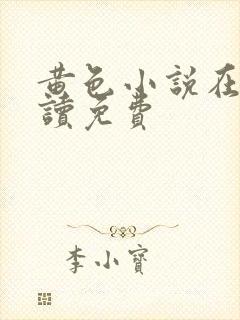 黃色小說在
讀免費
李小寶